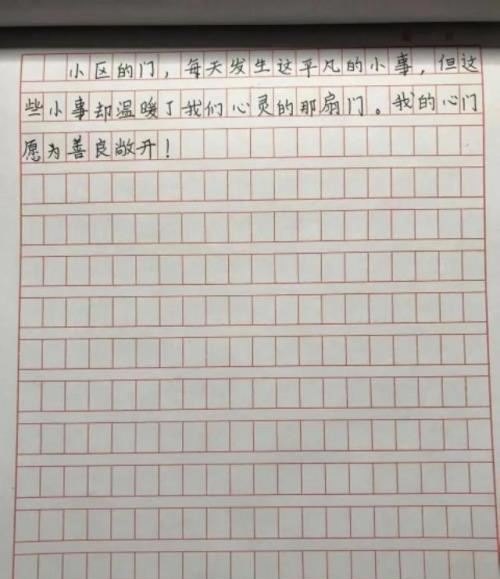 小区的门，每天发生这平凡的小事，但这
些小事却温暖了我们心灵的那扇门。我的心门
愿为善良敞开！